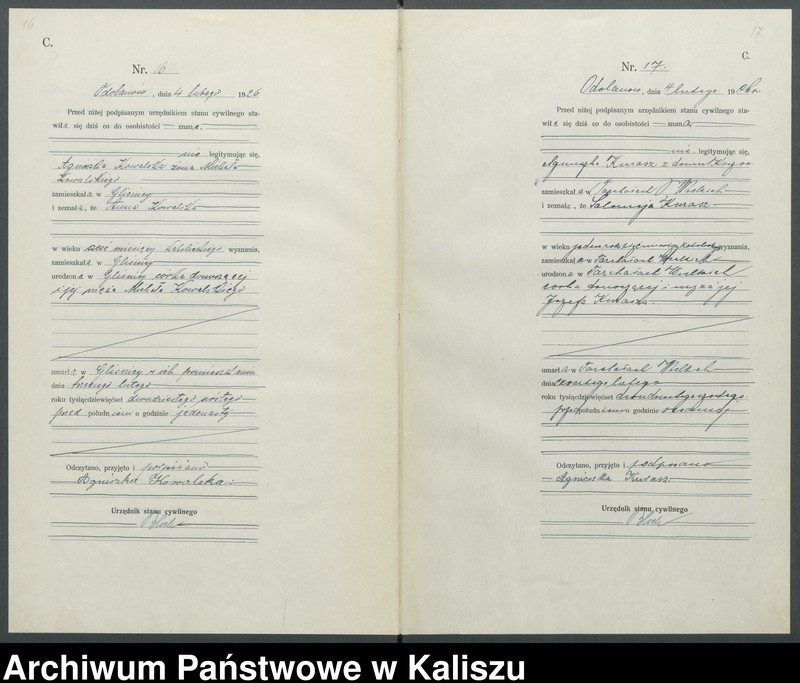 16
C.
Nr. 16
Odolanów, dnia 4 lutego 1926
Przed niżej podpisanym urzędnikiem stanu cywilnego sta-
wiła się dziś co do osobistości — mana.
nie legitymując się,
Agnieszka Kowalska żona Michała
Kowalskiego
zamieszkała w Gliśnicy
i zeznała, że Anna Kowalska
w wieku sześć miesięcy katolickiego wyznania,
zamieszkała w Gliśnicy
urodzona w Gliśnicy córka donoszącej
i jej męża Michała Kowalskiego
umarła w Gliśnicy w ich pomieszkaniu
dnia trzeciego lutego
roku tysiącdziewięćset dwudziestego szóstego
przed południem o godzinie jedenastej
Odczytano, przyjęto i podpisano
Agnieszka Kowalska
Urzędnik stanu cywilnego
17
C.
Nr. 17.
Odolanów, dnia 4 lutego 1926
Przed niżej podpisanym urzędnikiem stanu cywilnego sta-
wiła się dziś co do osobistości — mana.
nie legitymując się,
Agnieszka Kurasz z domu
zamieszkała w Tarchałach Wielkich
i zeznała, że Salomeja Kurasz.
w wieku jeden rok wyznania,
zamieszkała w Tarchałach Wielkich
urodzona w Tarchałach Wielkich
córka donoszącej i męża jej
Józefa Kurasza.
umarła w Tarchałach Wielkich
dnia czwartego lutego
roku tysiącdziewięćset dwudziestego szóstego
przed południem o godzinie
Odczytano, przyjęto i podpisano
Agnieszka Kurasz.
Urzędnik stanu cywilnego
Archiwum Państwowe w Kaliszu